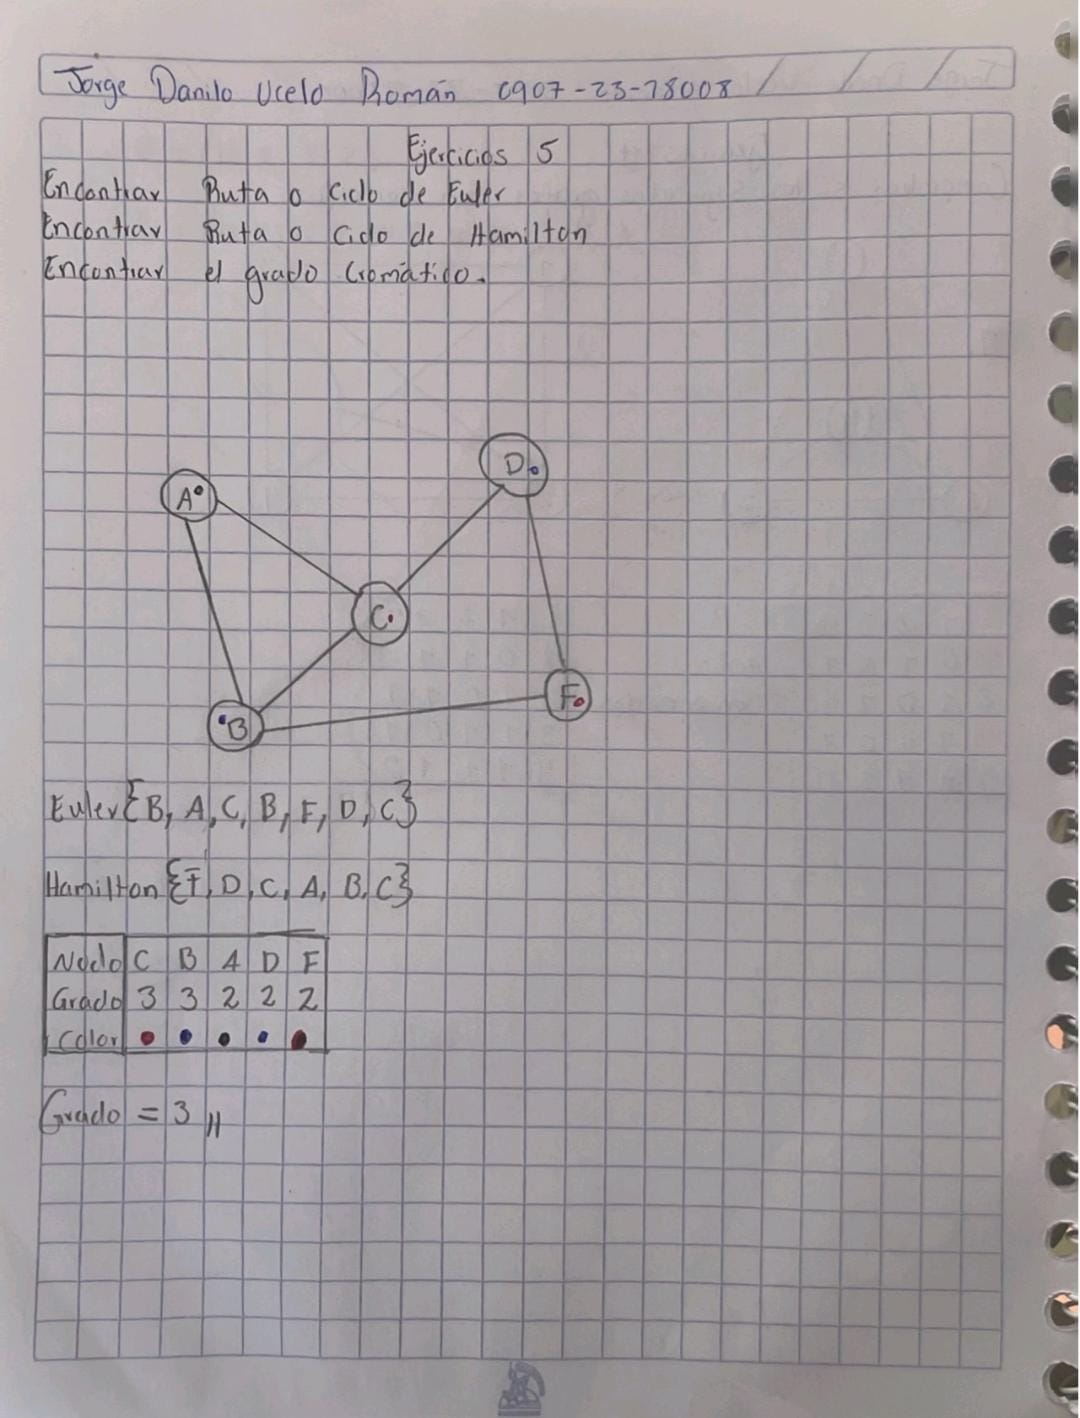 Jorge Danilo Ucelo Román 0907-23-78008
Ejercicios 5
Encontrar Ruta o Ciclo de Euler
Encontrar Ruta o Ciclo de Hamilton
Encontrar el grado Cromático.
D
A
C
F
B
Euler {B, A, C, B, F, D, C}
Hamilton {F, D, C, A, B, C}
Nodo C B A D F
Grado 3 3 2 2 2
Color
Grado = 3